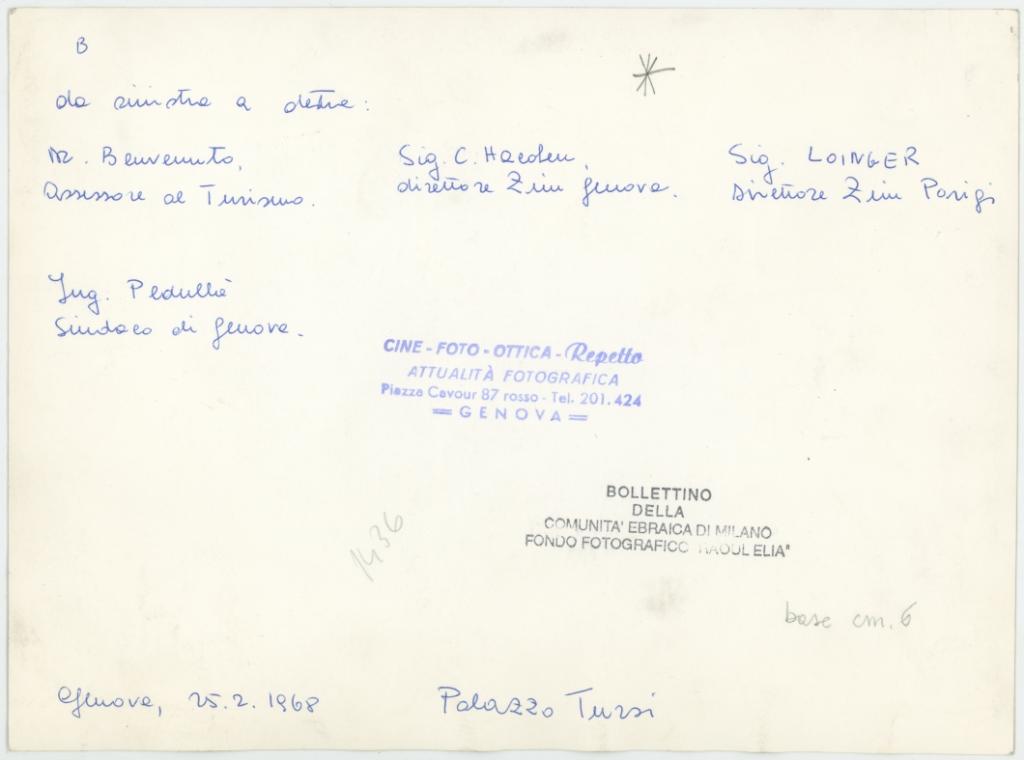 B
da sinistra a destra:
Mr. Benvenuto,
assessore al Turismo.
Sig. C. Hacohen,
direttore Zim Genova.
Sig. LOINGER
Direttore Zim Parigi
Ing. Pedullà
Sindaco di Genova.
CINE - FOTO - OTTICA - Repetto
ATTUALITÀ FOTOGRAFICA
Piazza Cavour 87 rosso - Tel. 201.424
= GENOVA =
BOLLETTINO
DELLA
COMUNITA' EBRAICA DI MILANO
FONDO FOTOGRAFICO "RAOUL ELIA"
1436
base cm. 6
Genova, 25.2.1968
Palazzo Tursi